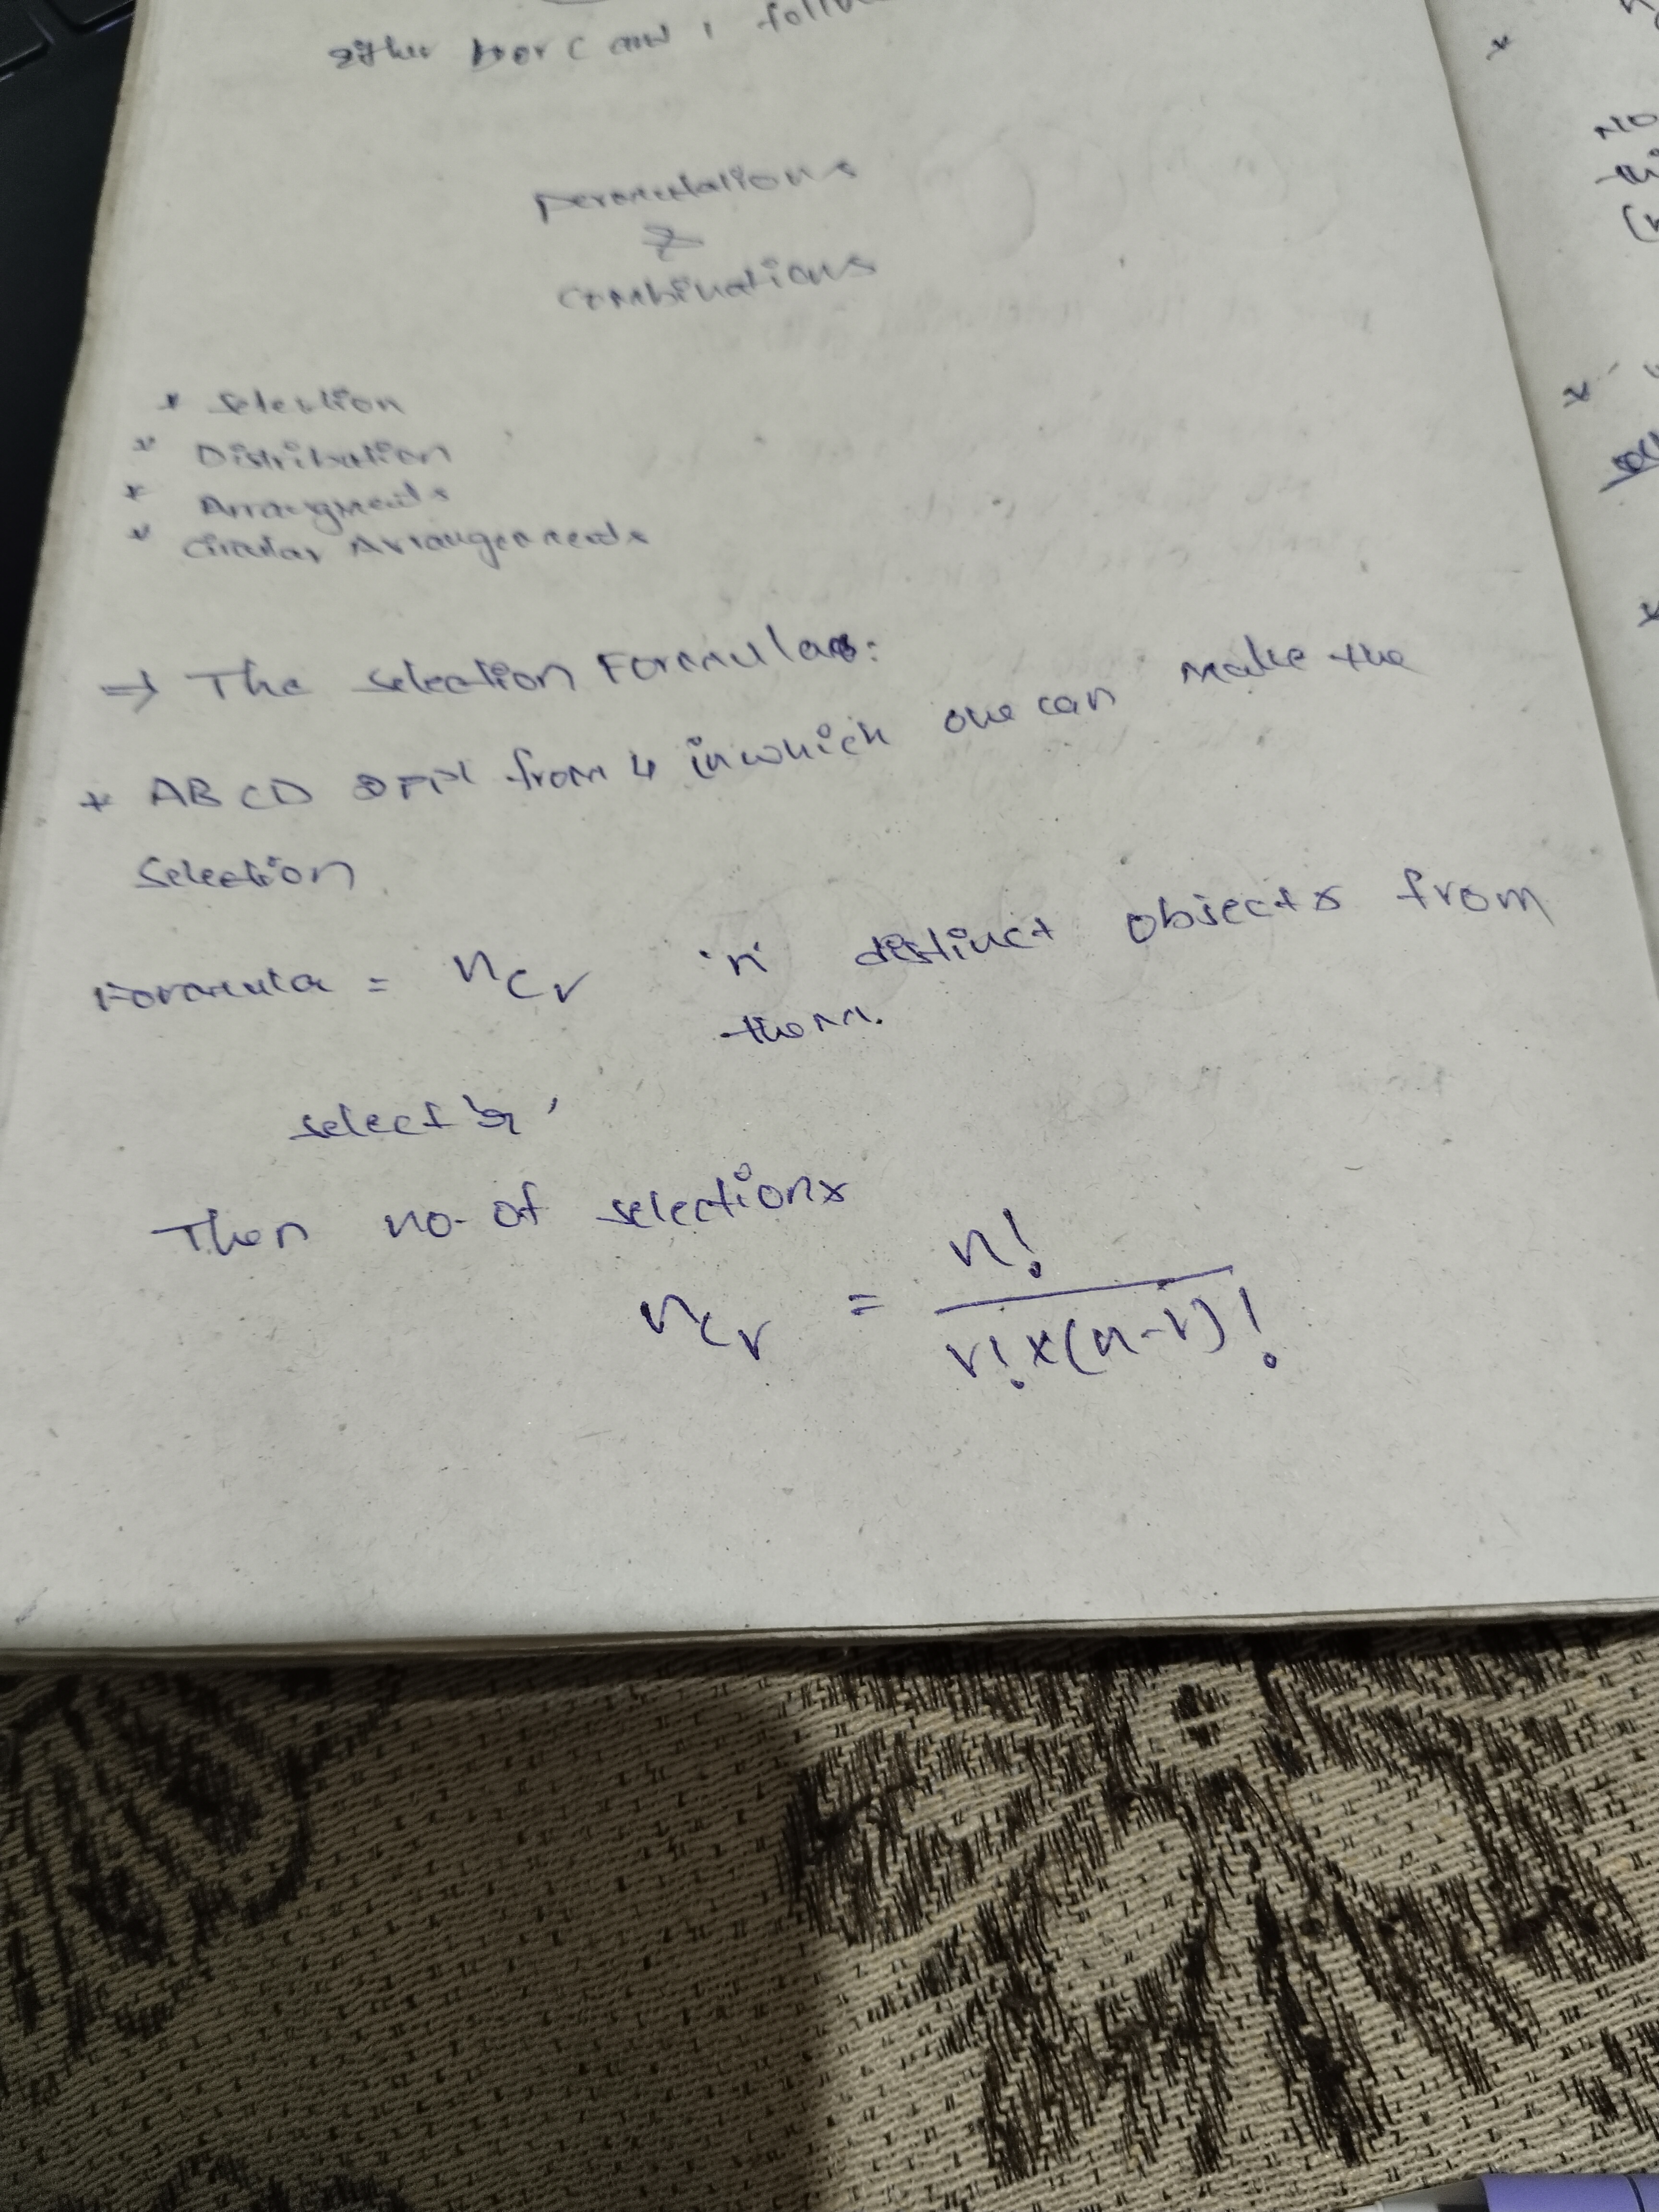 either b or c and , follow
permutations
&
combinations
* Selection
* Distribution
* Arrangments
* Circular Arrangements
⇒ The selection Formulas:
* ABCD from 4 in which one can make the
Selection.
Formula = nCr 'n' distinct objects from
them.
select 'r'
Then no. of selections
nCr = n! / r! x (n-r)!